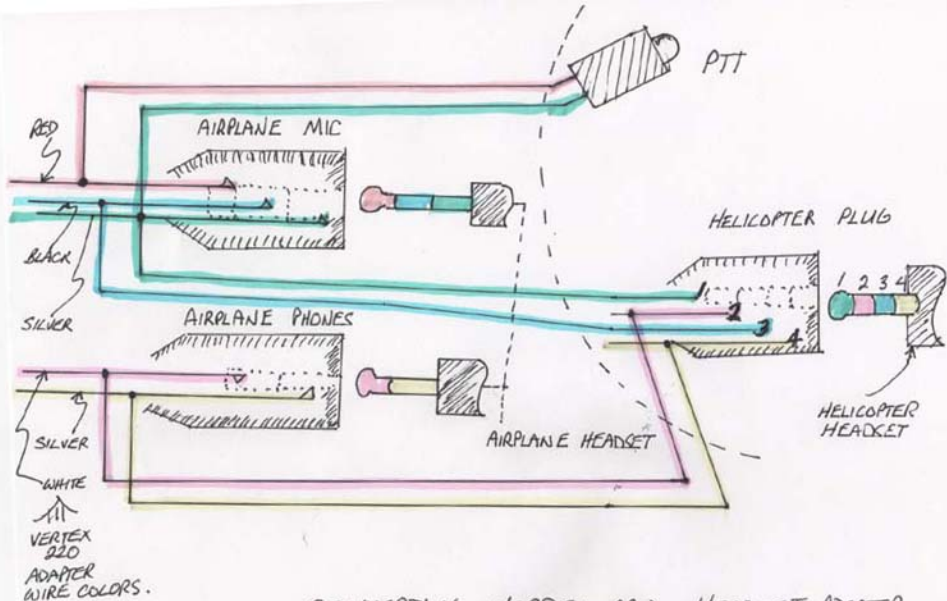 PTT
RED
AIRPLANE MIC
BLACK
SILVER
HELICOPTER PLUG
1 2 3 4
1
2
3
4
AIRPLANE PHONES
HELICOPTER
HEADSET
AIRPLANE HEADSET
SILVER
WHITE
VERTEX
220
ADAPTER
WIRE COLORS.